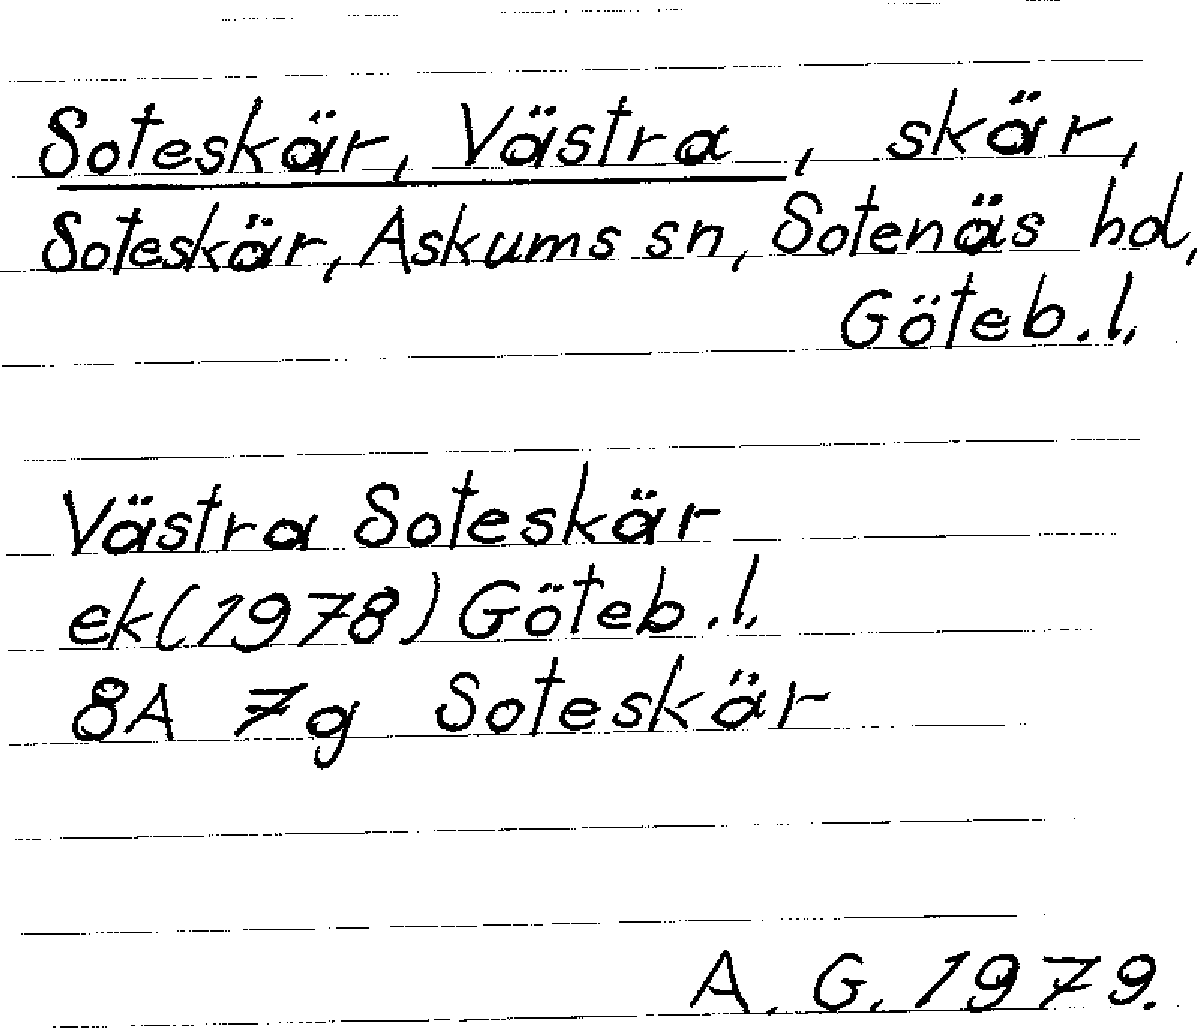 Soteskär, Västra, skär,
Soteskär, Askums sn, Sotenäs hd,
Göteb. l.
Västra Soteskär
ek (1978) Göteb. l.
8A 7g Soteskär
A. G. 1979.